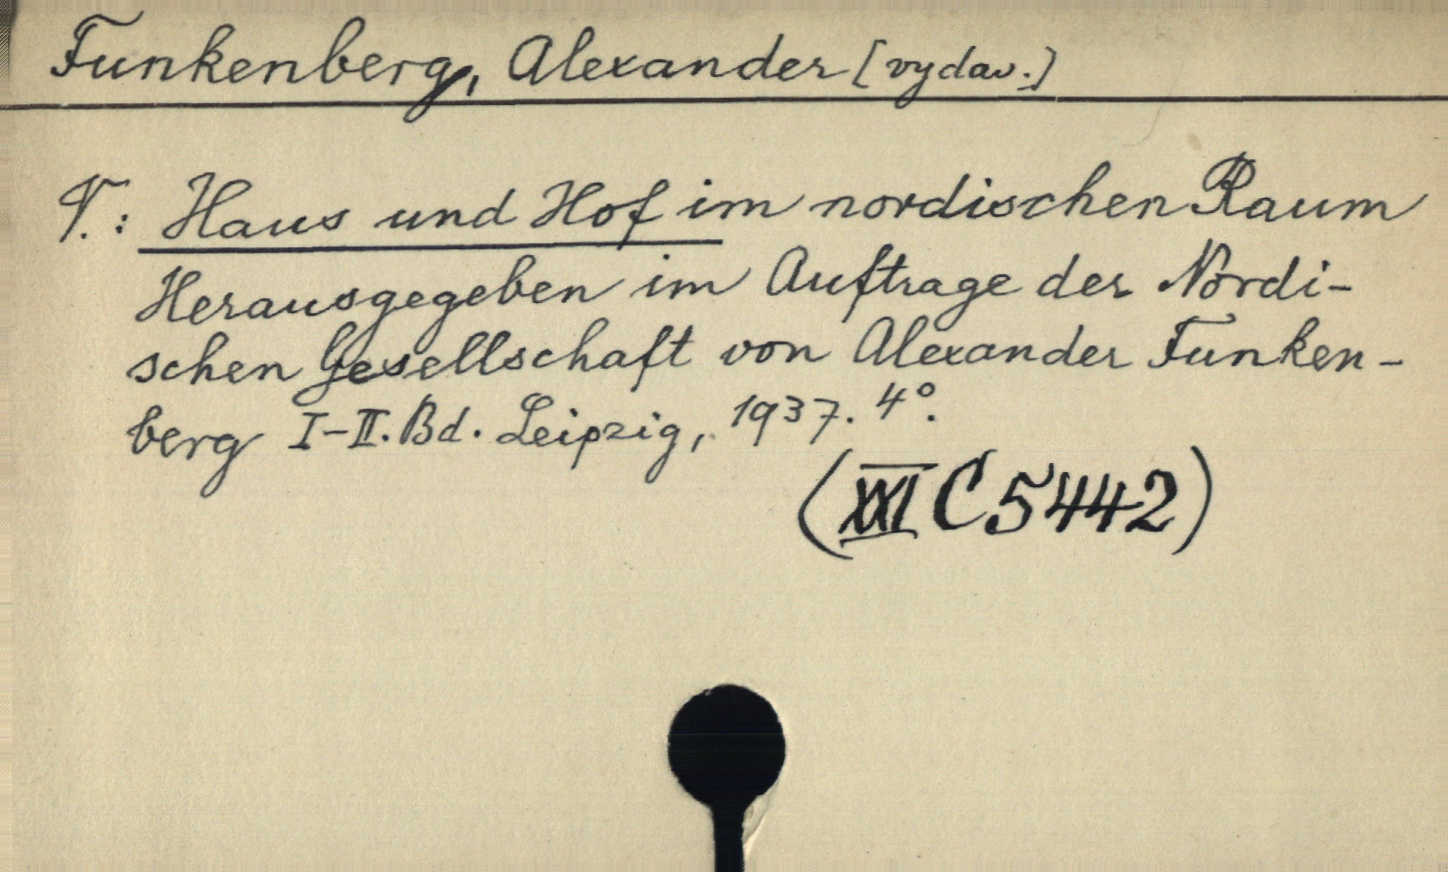 Funkenberg, Alexander [vydav.]
V.: Haus und Hof im nordischen Raum
Herausgegeben im Auftrage der Nordi-
schen Gesellschaft von Alexander Funken-
berg I-II. Bd. Leipzig, 1937. 4°.
(XXI C 5442)